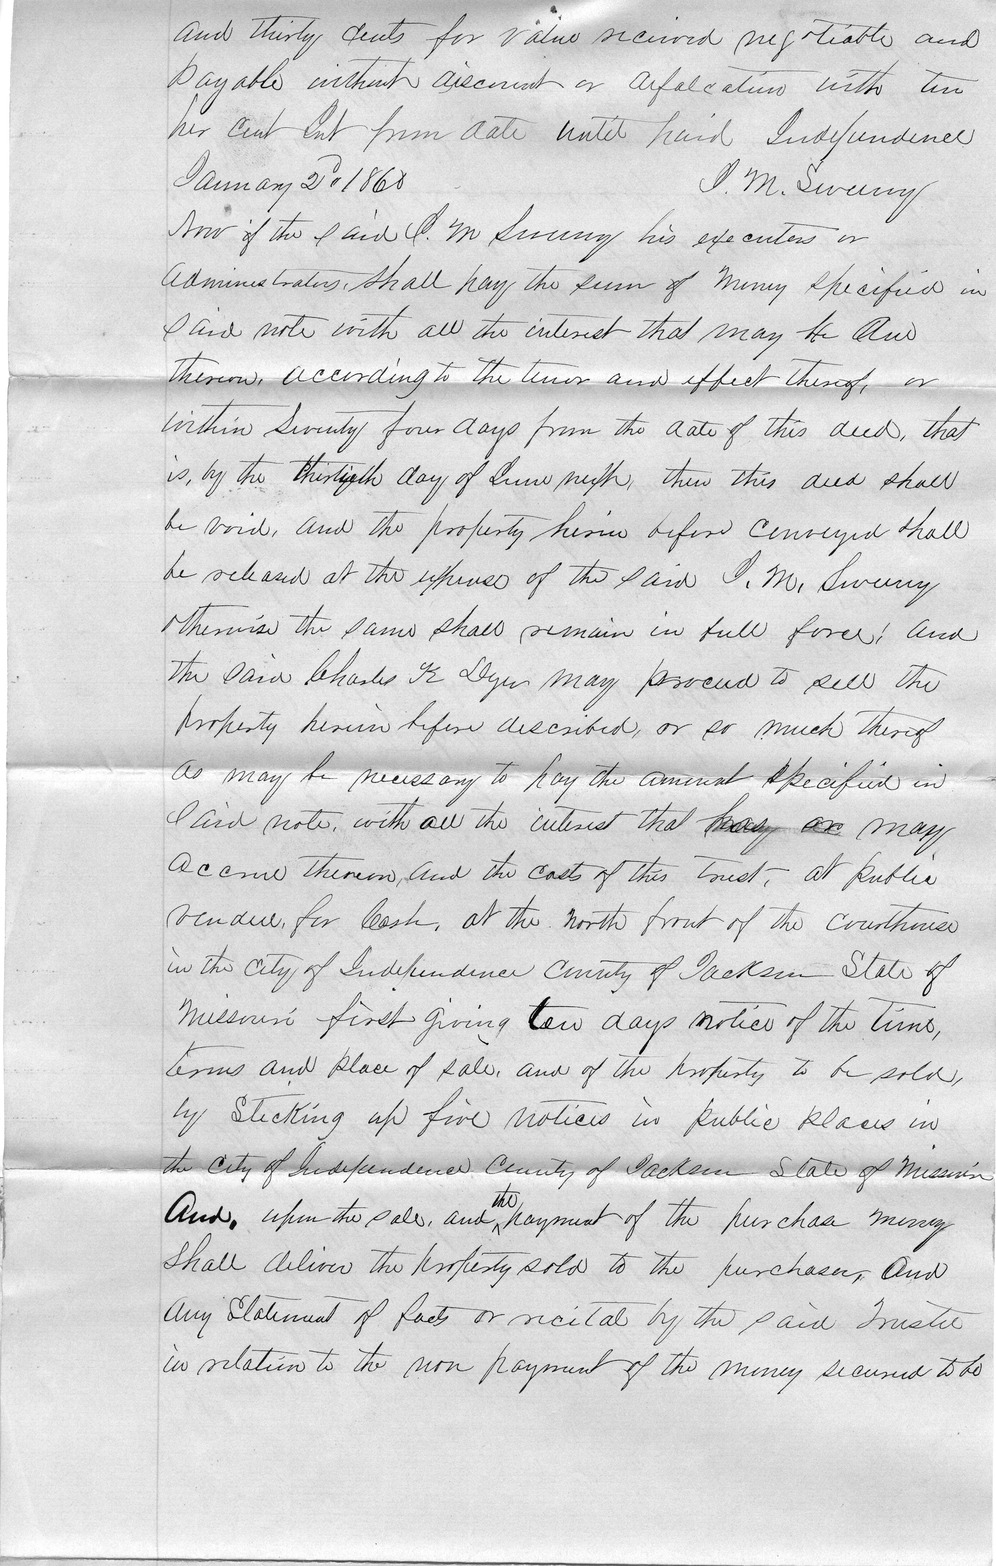 and thirty cents for value received negotiable and
payable without discount or defalcation with ten
per cent Int from date until paid Independence
January 2d 1868 J. M. Sweeny
Now if the said J. M Sweeny his executers or
administrators, shall pay the sum of Money specified in
said note with all the interest that may be due
thereon, according to the tenor and effect thereof, or
within Seventy four days from the date of this deed, that
is, by the thirtieth day of June next, then this deed shall
be void, and the property herein before conveyed shall
be released at the expense of the said J. M. Sweeny
otherwise the same shall remain in full force; and
the said Charles K Dyer may proceed to sell the
property herein before described, or so much thereof
as may be necessary to pay the amount specified in
said note, with all the interest that may or may
accrue thereon, and the costs of this trust, at public
vendue, for Cash, at the north front of the courthouse
in the city of Independence County of Jackson State of
Missouri first giving ten days notice of the time,
terms and place of sale, and of the property to be sold,
by Sticking up five notices in public places in
the city of Independence County of Jackson State of Missouri
And, upon the sale, and the payment of the purchase money
shall deliver the property sold to the purchaser, And
any Statement of facts or recital by the said Trustee
in relation to the non payment of the money secured to be